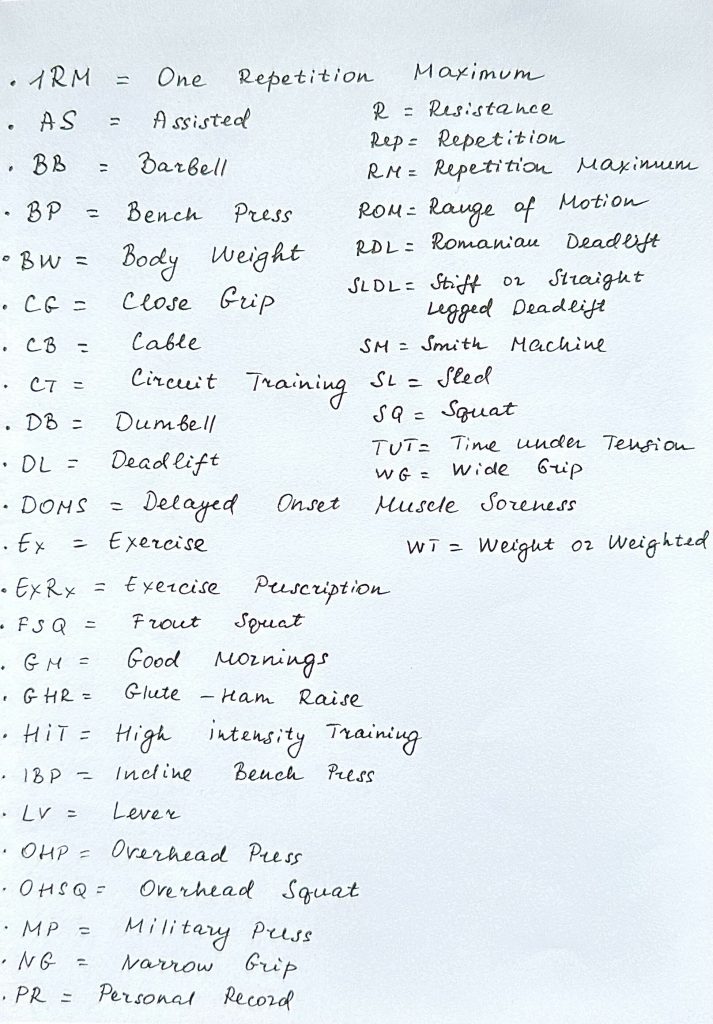 • 1RM = One Repetition Maximum
• AS = Assisted
• BB = Barbell
• BP = Bench Press
• BW = Body Weight
• CG = Close Grip
• CB = Cable
• CT = Circuit Training
• DB = Dumbell
• DL = Deadlift
• DOMS = Delayed Onset Muscle Soreness
• Ex = Exercise
• ExRx = Exercise Prescription
• FSQ = Front Squat
• GM = Good Mornings
• GHR = Glute - Ham Raise
• HiT = High intensity Training
• IBP = Incline Bench Press
• LV = Lever
• OHP = Overhead Press
• OHSQ = Overhead Squat
• MP = Military Press
• NG = Narrow Grip
• PR = Personal Record
R = Resistance
Rep = Repetition
RM = Repetition Maximum
ROM = Range of Motion
RDL = Romanian Deadlift
SLDL = Stiff or Straight
Legged Deadlift
SM = Smith Machine
SL = Sled
SQ = Squat
TUT = Time under Tension
WG = Wide Grip
WT = Weight or Weighted